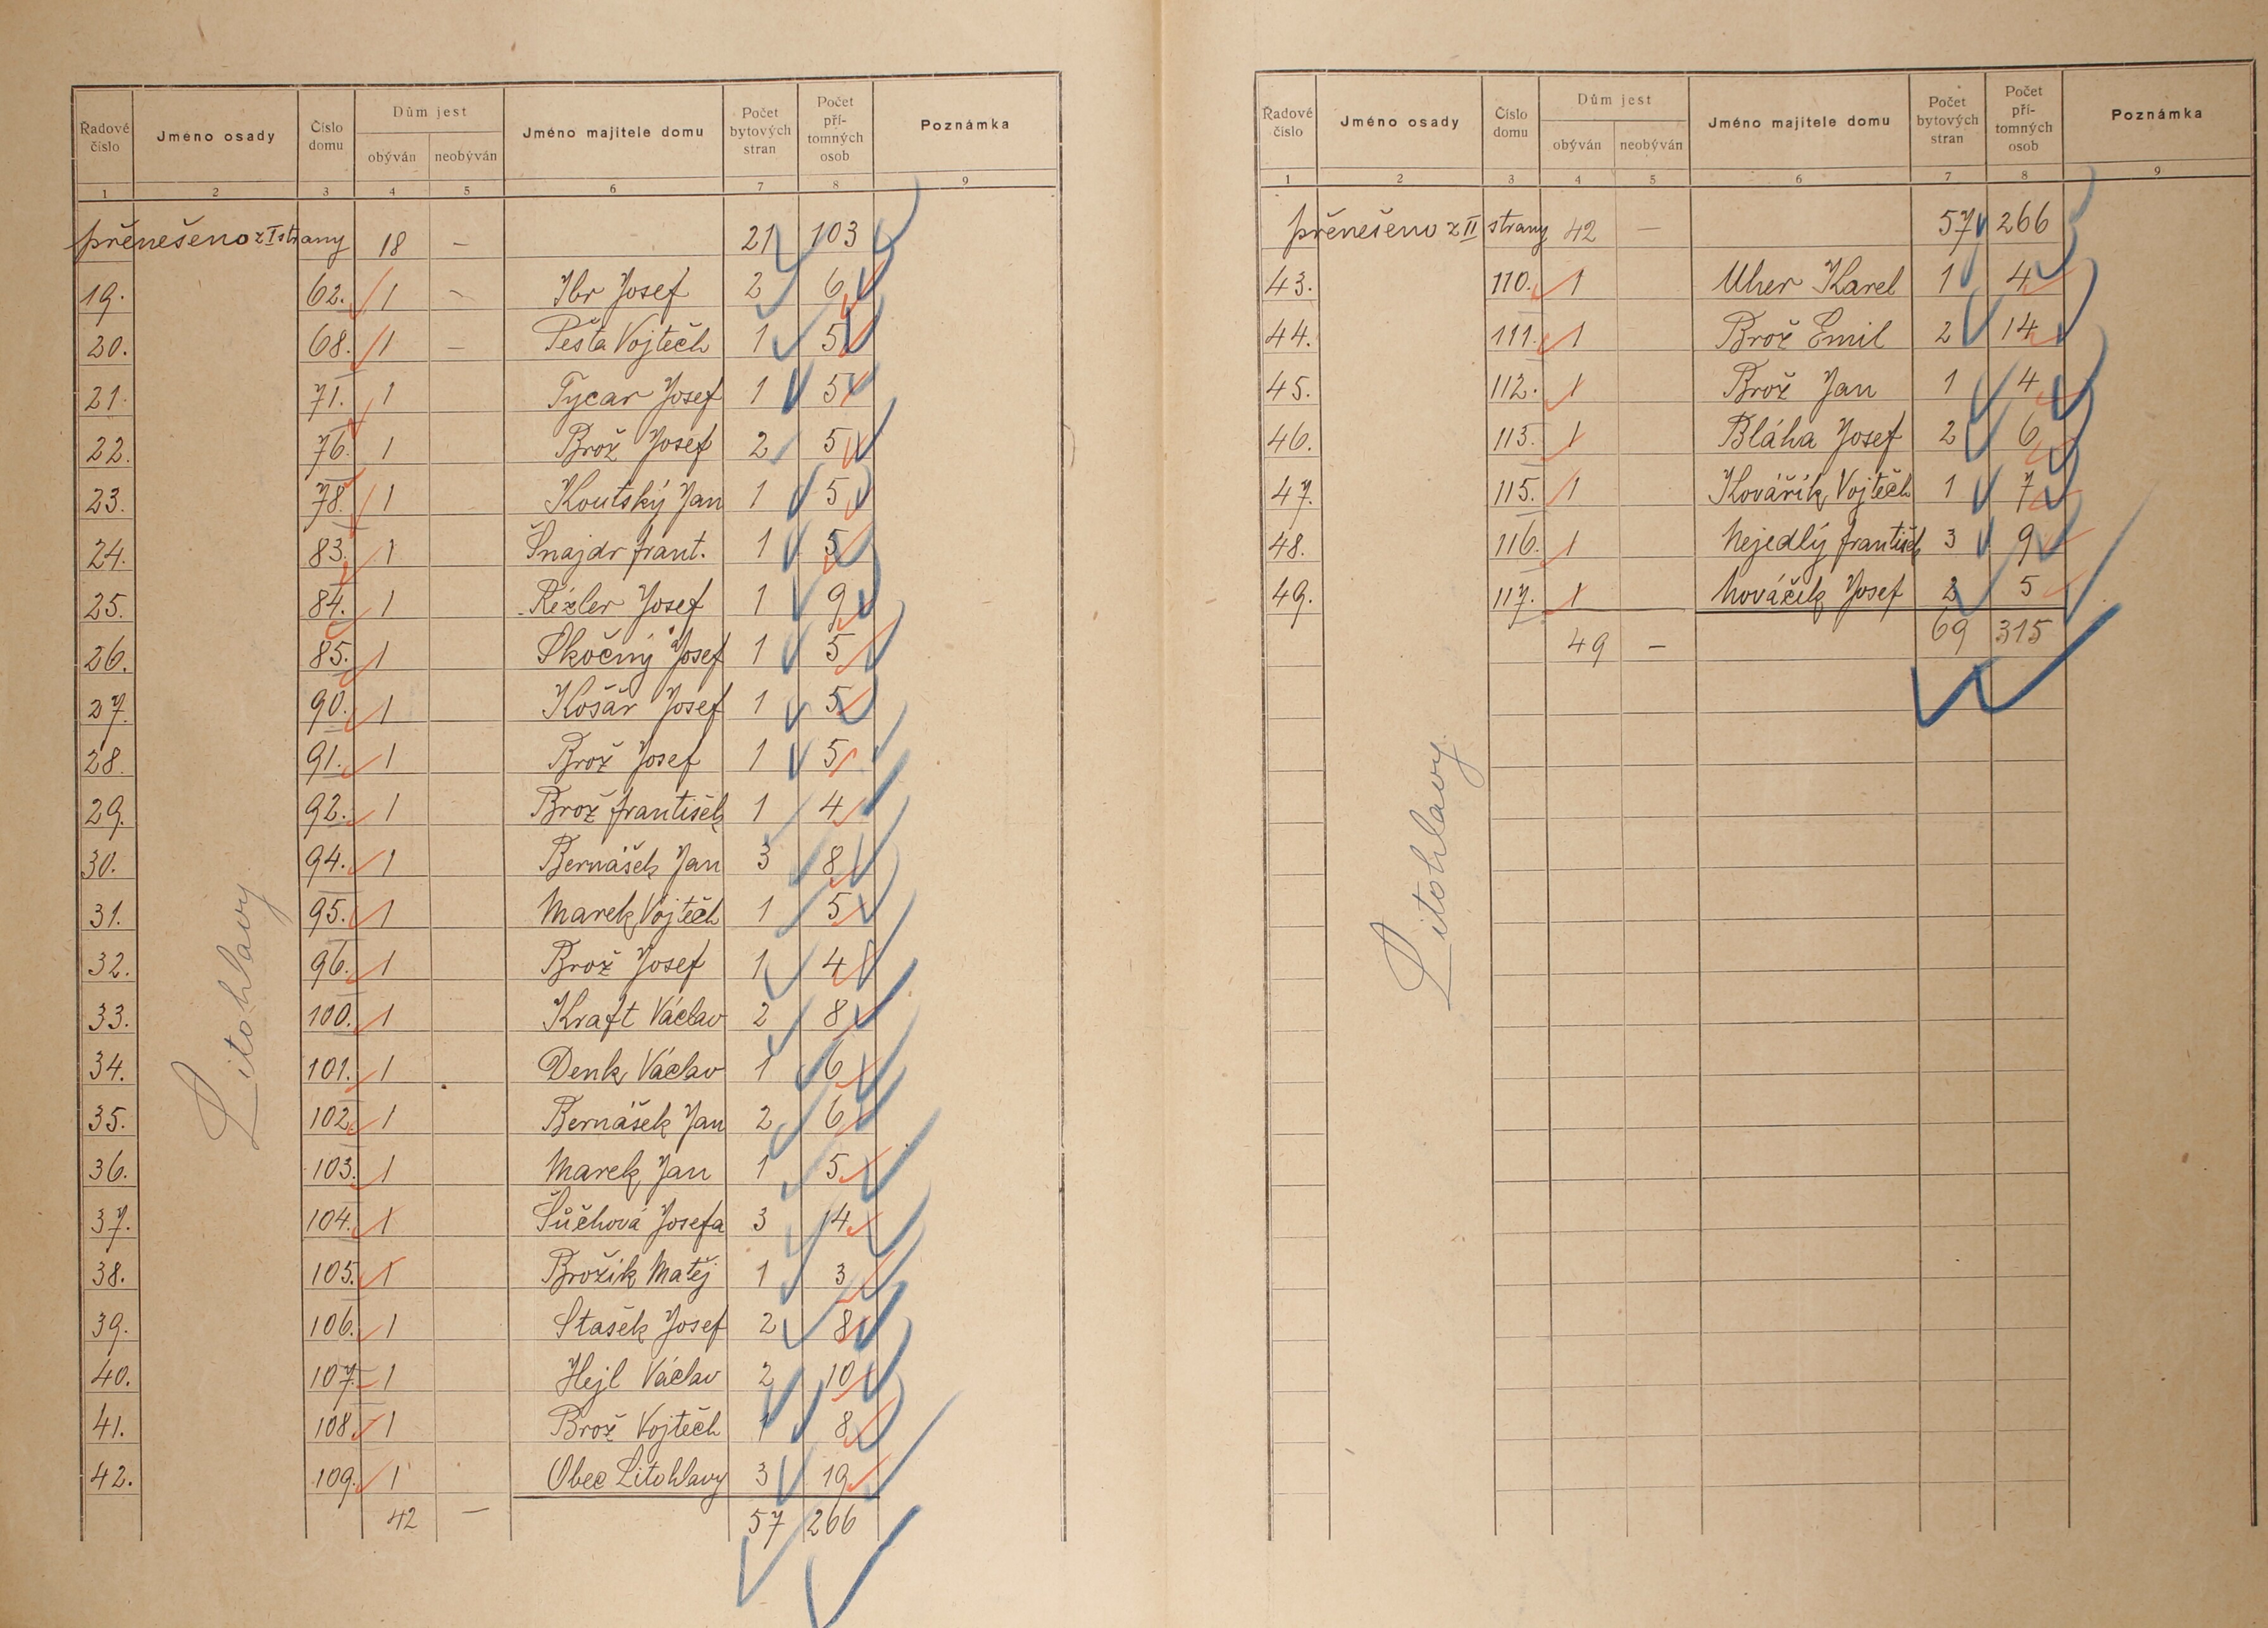 Řadové číslo | Jméno osady | Číslo domu | Dům jest | Jméno majitele domu | Počet bytových stran | Počet pří-tomných osob | Poznámka
obýván | neobýván
1 2 3 4 5 6 7 8 9
přenešeno z I strany 18 – 21 103
19. 62. 1 – Ibr Josef 2 6
20. 68. 1 – Pešta Vojtěch 1 5
21. 71. 1 Tycar Josef 1 5
22. 76. 1 Brož Josef 2 5
23. 78. 1 Koutský Jan 1 5
24. 83. 1 Šnajdr frant. 1 5
25. 84. 1 Rézler Josef 1 9
26. 85. 1 Skočný Josef 1 5
27. 90. 1 Košář Josef 1 5
28. 91. 1 Brož Josef 1 5
29. 92. 1 Brož františek 1 4
30. 94. 1 Bernášek Jan 3 8
31. 95. 1 Marek Vojtěch 1 5
32. 96. 1 Brož Josef 1 4
33. 100. 1 Kraft Václav 2 8
34. 101. 1 Denk Václav 1 6
35. 102. 1 Bernášek Jan 2 6
36. 103. 1 Marek Jan 1 5
37. 104. 1 Šůchová Josefa 3 14
38. 105. 1 Brožík Matěj 1 3
39. 106. 1 Stašek Josef 2 8
40. 107. 1 Hejl Václav 2 10
41. 108. 1 Brož Vojtěch 1 8
42. 109. 1 Obec Litohlavy 3 19
42 – 57 266
Litohlavy
Řadové číslo | Jméno osady | Číslo domu | Dům jest | Jméno majitele domu | Počet bytových stran | Počet pří-tomných osob | Poznámka
obýván | neobýván
1 2 3 4 5 6 7 8 9
přenešeno z II strany 42 – 57 266
43. 110. 1 Uher Karel 1 4
44. 111. 1 Brož Emil 2 14
45. 112. 1 Brož Jan 1 4
46. 113. 1 Bláha Josef 2 6
47. 115. 1 Kovářík Vojtěch 1 7
48. 116. 1 Nejedlý františek 3 9
49. 117. 1 Nováček Josef 2 5
49 – 69 315
Litohlavy.